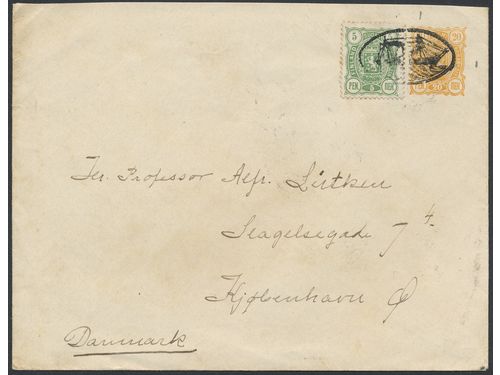 5 20
PEN. PEN. PEN.
5 20
Hr. Professor Alfr. Lütken
Slagelsegade 7 4.
Kjøbenhavn Ø
Danmark